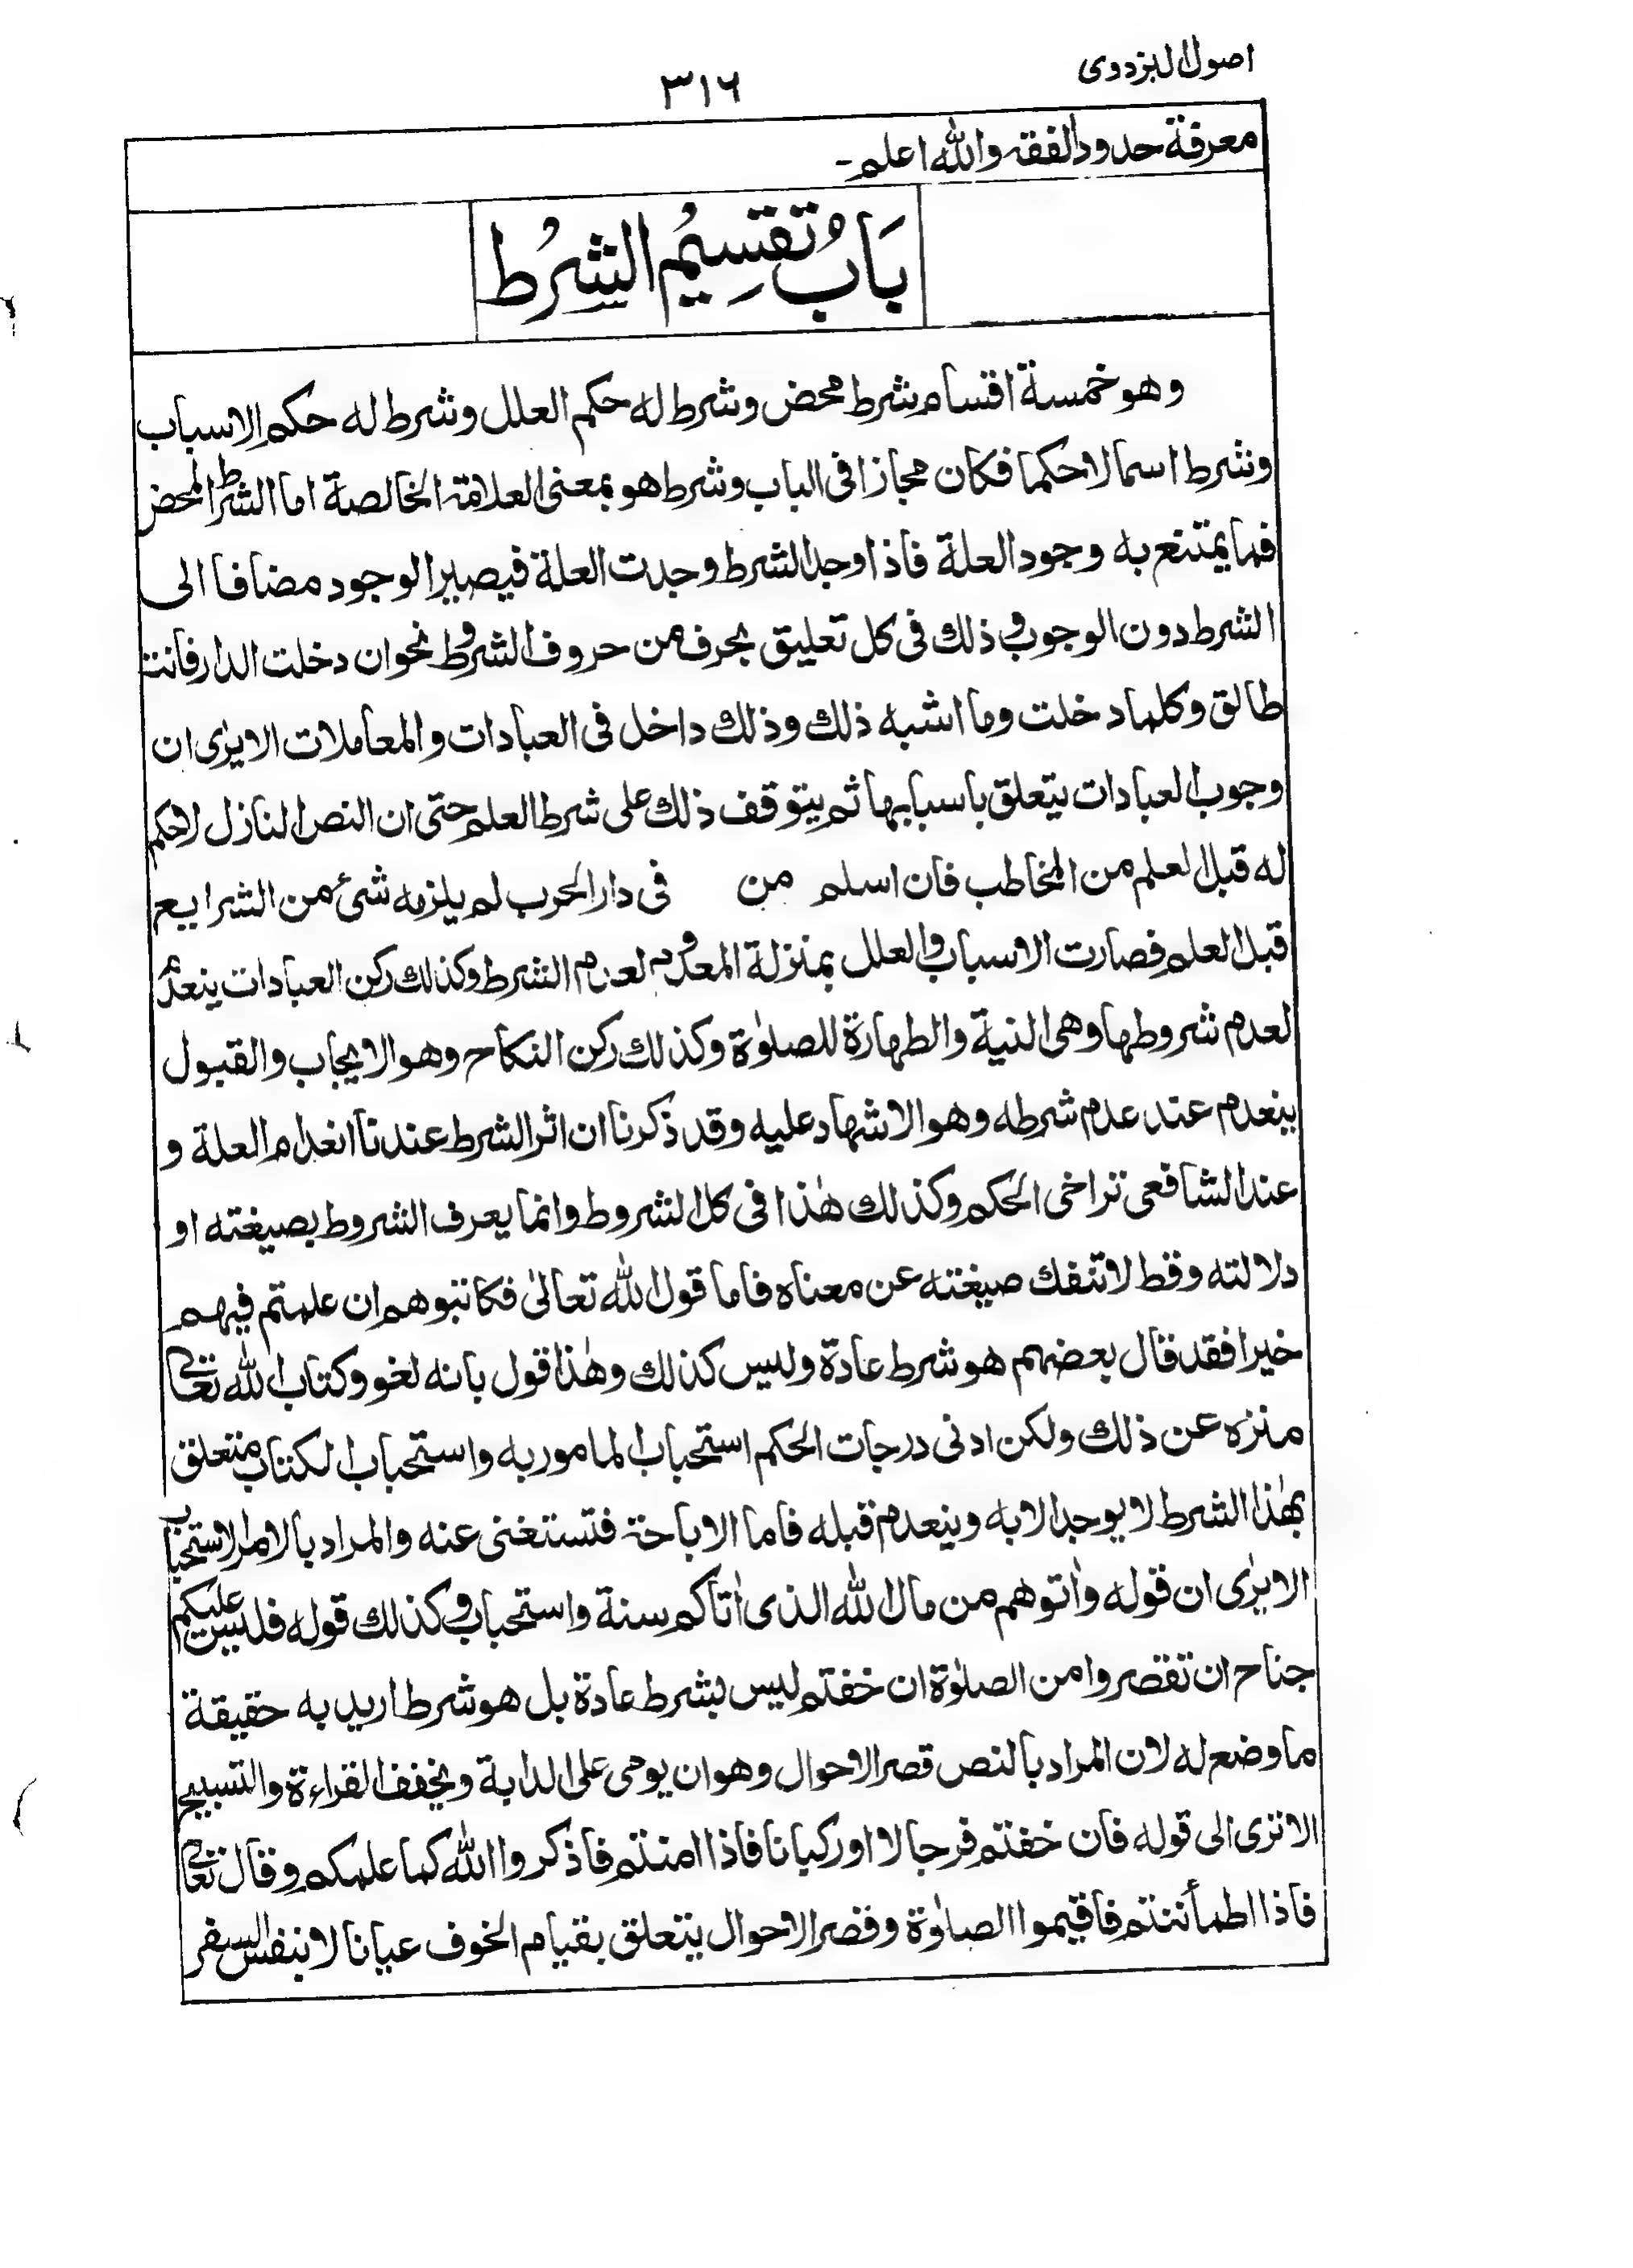 اصول البزدوى
٣١٦
معرفة حدود الفقه والله اعلم۔
بَابُ تقسِيمُ الشرُط
وهو خمسة اقسام شرط محض وشرط له حكم العلل وشرط له حكم الاسباب
وشرط اسما لا حكما فكان مجازا فى الباب وشرط هو بمعنى العلامة الخالصة اما الشرط المحض
فما يمتنع به وجود العلة فاذا وجد الشرط وجدت العلة فيصير الوجود مضافا الى
الشرط دون الوجوب وذلك فى كل تعليق بحرف من حروف الشروط نحو ان دخلت الدار فانت
طالق وكلما دخلت وما اشبه ذلك وذلك داخل فى العبادات والمعاملات الا يرى ان
وجوب العبادات يتعلق باسبابها ثم يتوقف ذلك على شرط العلم حتى ان النص النازل لا حكم
له قبل العلم من المخاطب فان اسلم من فى دار الحرب لم يلزمه شئ من الشرايع
قبل العلم فصارت الاسباب والعلل بمنزلة المعدوم لعدم الشرط وكذلك ركن العبادات ينعدم
لعدم شروطها وهى النية والطهارة للصلوٰة وكذلك ركن النكاح وهو الايجاب والقبول
ينعدم عند عدم شرطه وهو الاشهاد عليه وقد ذكرنا ان اثر الشرط عندنا انعدام العلة و
عند الشافعى تراخى الحكم وكذلك هٰذا فى كل الشروط وانما يعرف الشروط بصيغته او
دلالته وقط لا تنفك صيغته عن معناه فاما قول الله تعالىٰ فكاتبوهم ان علمتم فيهم
خيرا فقد قال بعضهم هو شرط عادة وليس كذلك وهٰذا قول بانه لغو وكتاب الله تعالى
منزه عن ذلك ولكن ادنى درجات الحكم استحباب المامور به واستحباب الكتاب متعلق
بهٰذا الشرط لا يوجد الا به وينعدم قبله فاما الاباحة فتستغنى عنه والمراد بالامر الاستحباب
الا يرٰى ان قوله واٰتوهم من مال الله الذى اٰتاكم سنة واستحباب وكذلك قوله فليس عليكم
جناح ان تقصروا من الصلوٰة ان خفتم ليس بشرط عادة بل هو شرط اريد به حقيقة
ما وضع له لان المراد بالنص قصر الاحوال وهو ان يومى على الدابة ويخفف القراءة والتسبيح
الا ترى الى قوله فان خفتم فرجالا او ركبانا فاذا امنتم فاذكروا الله كما علمكم وقال تعالى
فاذا اطمأننتم فاقيموا الصلوٰة وقصر الاحوال يتعلق بقيام الخوف عيانا لا بنفس السفر